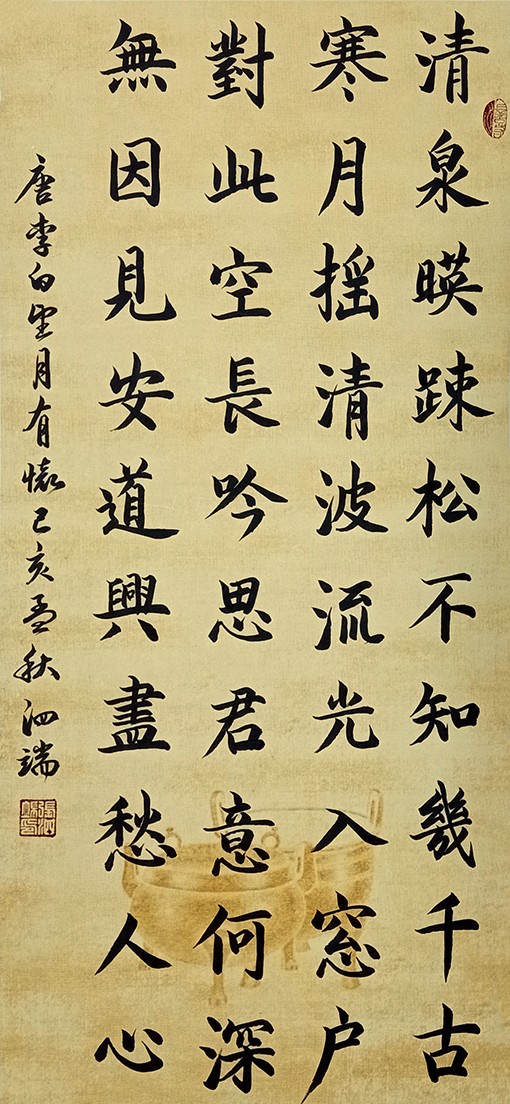 清泉暎踈松不知幾千古
寒月摇清波流光入窓户
對此空長吟思君意何深
無因見安道興盡愁人心
唐李白望月有懷己亥孟秋泗端